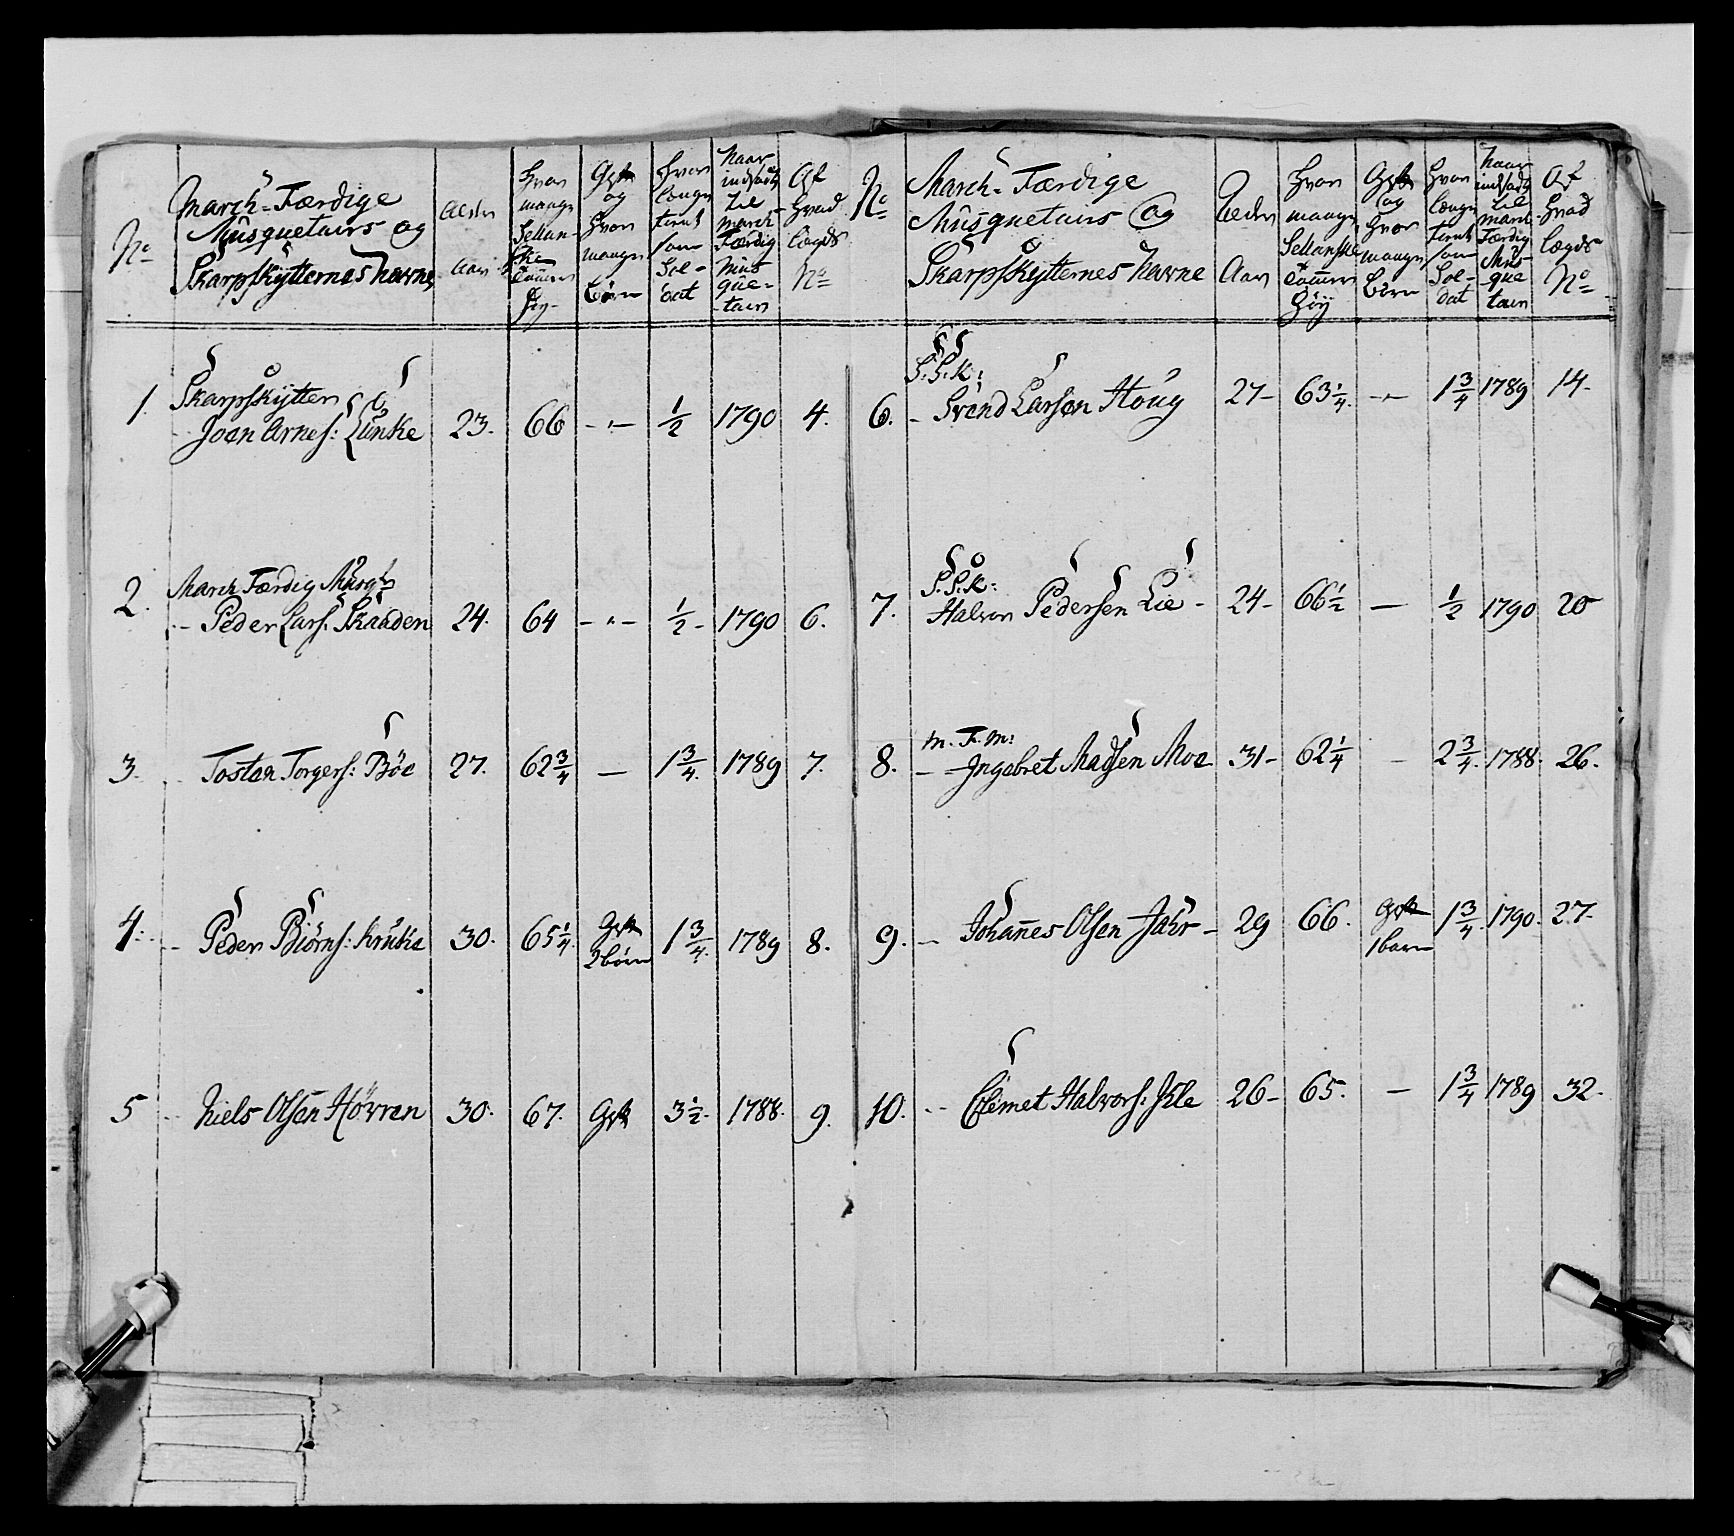 No
March-Færdige
Musquetairs og
Skarpskytternes Navne
Alder
Aar
Hvor
mange
Sellan-
ske
Tommer
Høy
Gift
og
Hvor
mange
Børn
Hvor
længe
tient
som
Sol-
dat
Naar
indsadt
til
march
Færdig
Mus
que-
tair
Af
Hvad
lægds
No
1. Skarpskytter
Joen Arnes: Lunke 23. 66 - " - 1/2 1790 4.
2. March Færdig Musqt
Peder Lars: Skaaden 24. 64 - " - 1/2 - 1790 6.
3. Tosten Torgers: Böe 27. 62 3/4 — 1 3/4. 1789 7.
4. Peder Biörns: Kruke 30. 65 1/4. Gift 1 3/4. 1789 8.
2 börn
5 Niels Olsen Hövren 30. 67. Gift 3 1/2. 1788. 9.
No
March-Færdige
Musquetairs Og
Skarpskytternes Navne
Alder
Aar
Hvor
mange
Sellanske
Tommer
Höy
Gift
og
Hvor
mange
Börn
Hvor
længe
tient
som
Sol-
dat
Naar
indsadt
til
march
Færdig
Mus-
que
tair
Af
Hvad
lægds
No
6. S:S:K:
Svend Larsen Houg 27- 63 1/4. - " - 1 3/4 1789 14.
7. S:S:K:
Halvor Pedersen Lie - 24- 66 1/2 — 1/2 1790 20
8. M. F. M:
Ingebret Madsen Moe 31- 62 1/4 - 2 3/4. 1788. 26.
9. Johannes Olsen Jahr - 29 66. Gift 1 3/4. 1790. 27.
1 barn
10. Clemet Halvors: Ille 26- 65. — 1 3/4 1789 32.